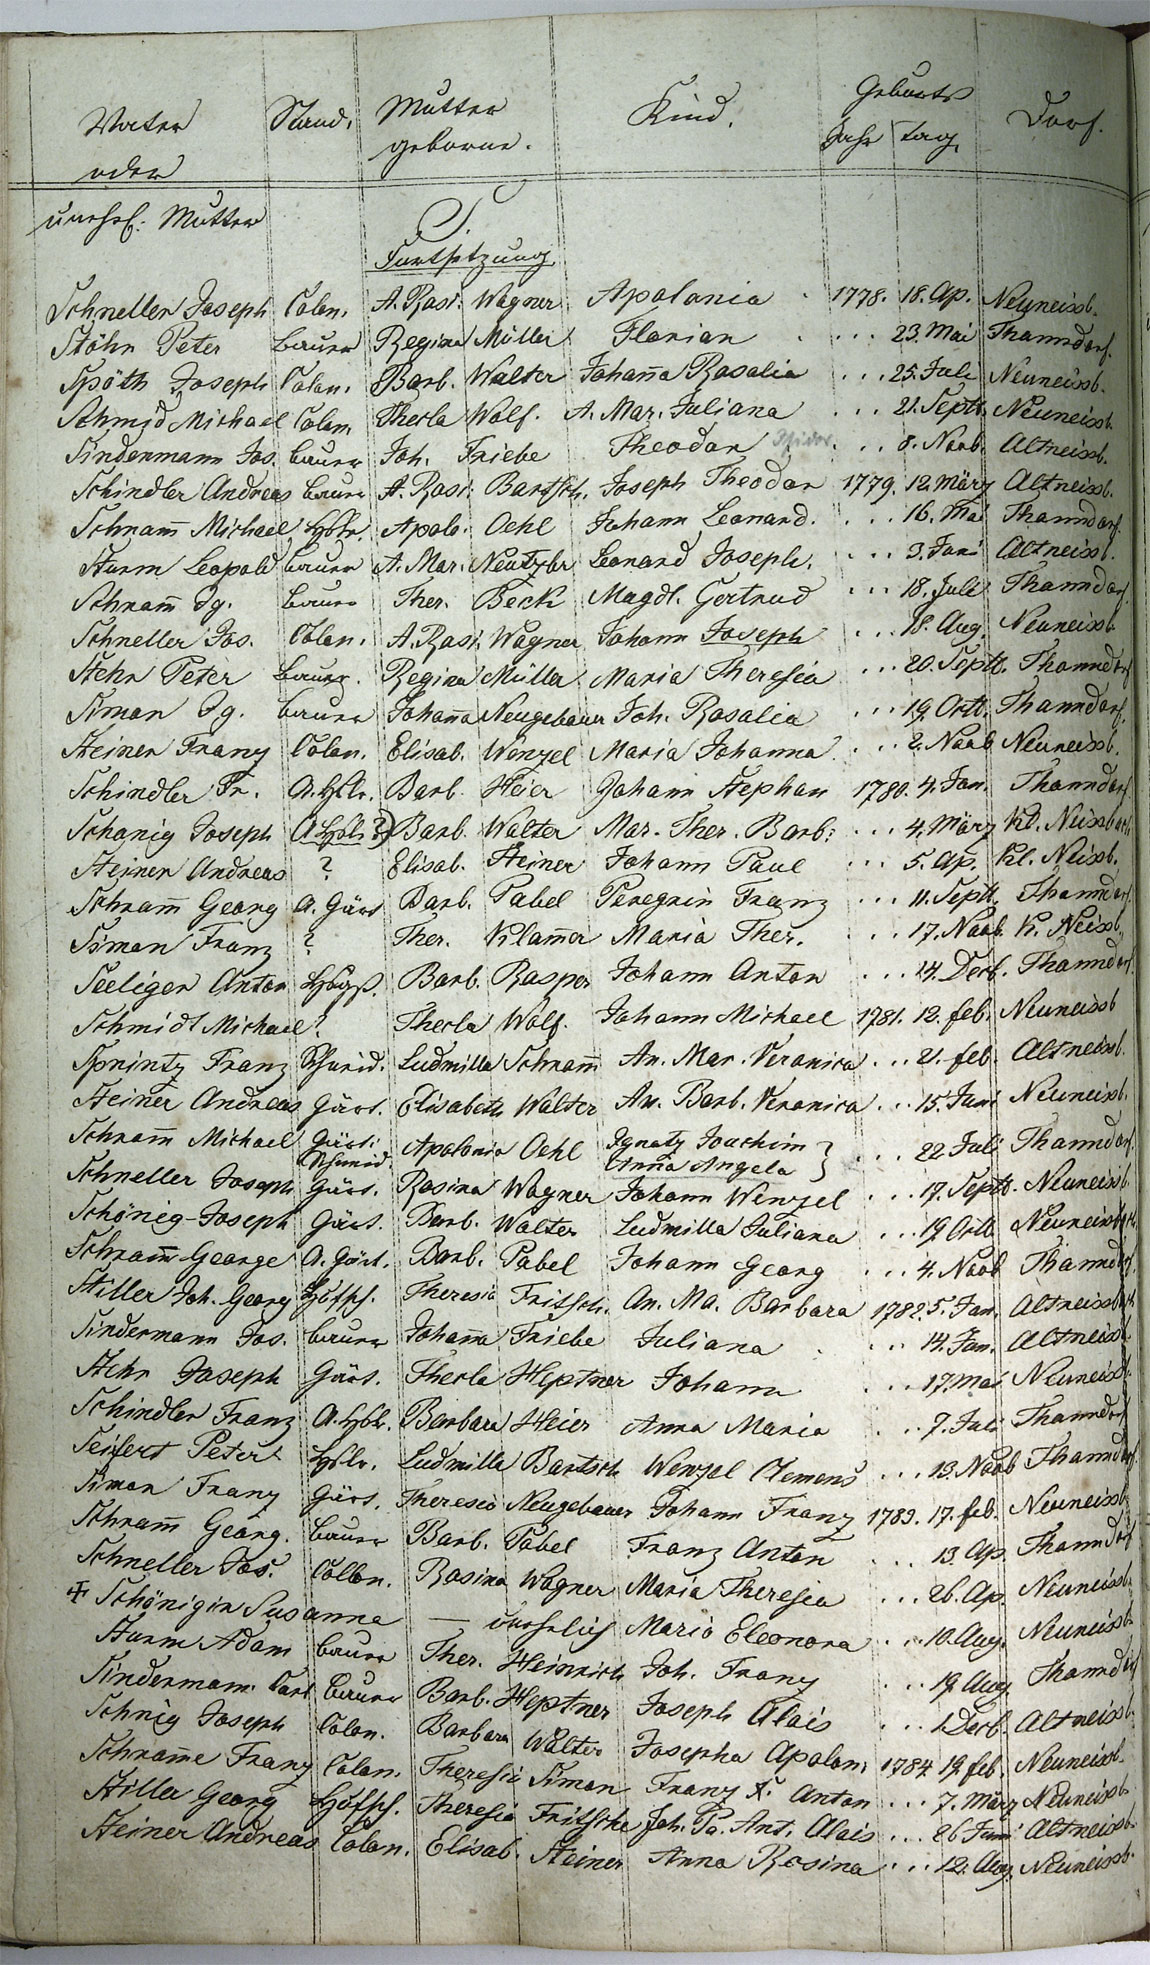 Vater Stand. Mutter Kind. Geburts Dorf.
oder geborne. Jahr Tag
unehel: Mutter
S.
Fortsetzung
Schneller Joseph Colon. A. Rosi: Wagner Apolonia 1778. 18. Ap. Neuneissb.
Stöhr Peter bauer Regina Müller Florian . ... 23. Mai Thanndorf.
Späth Joseph Colon. Barb. Walter Johana Rosalia ... 25. Juli Neuneissb.
Schmid Michael Colon. Thecla Wolf. A. Mar. Juliana ... 21. Septb. Neuneissb.
Sindermann Jos. bauer Joh. Friebe Theodor Isidor ... 8. Novb. Altneissb.
Schindler Andreas baur A. Rosi: Bartsch. Joseph Theodor 1779. 12. März Altneissb.
Schram Michael Apolo. Oehl Johann Leonard. ... 16. Mai Thanndorf.
Sturm Leopold bauer A. Mar. Neutzler Leonard Joseph. ... 3. Juni Altneissb.
Schram Ig. bauer Ther. Beck Magdl. Gertrud ... 18. Juli Thanndorf.
Schneller Jos. Colon. A. Rosi. Wagner Johann Joseph ... 18. Aug. Neuneissb.
Stehr Peter bauer. Regina Müller Maria Theresia ... 20. Septb. Thanndorf
Siman Ig. bauer Johana Neugebauer Joh. Rosalia ... 19. Octb. Thanndorf.
Steiner Franz Colon. Elisab. Wenzel Maria Johanna ... 2. Novb Neuneissb.
Schindler Fr. A. Hslr. Barb. Heier Johann Stephan 1780. 4. Jan. Thanndorf
Schönig Joseph A. Hslr ?) Barb. Walter Mar. Ther. Barb: ... 4. März Kl. Neissbach
Steiner Andreas ? Elisab. Steiner Johann Paul ... 5. Ap. Kl. Neissb.
Schram Georg A. Gärt Barb. Pabel Peregrin Franz ... 11. Septb. Thanndorf.
Siman Franz ? Ther. Klamer Maria Ther. ... 17. Novb. K. Neissb.
Seeliger Anton Barb. Rasper Johann Anton ... 14. Decb. Thanndorf.
Schmidt Michael ? Thecla Wolf. Johann Michael 1781. 12. feb. Neuneissb
Sprintz Franz Schmid. Ludmilla Schram An. Mar. Veronica ... 21. feb. Altneissb.
Steiner Andreas Gärt. Elisabeth Walter An. Barb. Veronica ... 15. Juni Neuneissb.
Schram Michael Gärt: Schmid. Apolonia Oehl Ignatz Joachim } ... 22 Juli Thanndorf.
Anna Angela
Schneller Joseph Gärt. Rosina Wagner Johann Wenzel ... 17. Septb. Neuneissb.
Schönig Joseph Gärt. Barb. Walter Ludmilla Juliana ... 19. Octb Neuneissbach.
Schram George A. Gärt. Barb. Pabel Johann Georg ... 4. Novb Thanndorf.
Stiller Joh. Georg Theresia Fritsch. An. Ma. Barbara 1782. 5. Jan. Altneissbach
Sindermann Jos. bauer Johana Friebe Juliana . ... 14. Jan. Altneissb.
Stehr Joseph Gärt. Thecla Heptner Johann ... 17. Mai Neuneissb.
Schindler Franz A. Hslr. Barbara Heier Anna Maria ... 7. Juli Thanndorf
Seifert Peter Hslr. Ludmilla Bartsch Wenzel Clemens ... 13. Novb Thanndorf.
Siman Franz Gärt. Theresia Neugebauer Johann Franz 1783. 17. feb. Neuneissb.
Schram Georg. bauer Barb. Pabel Franz Anton ... 13. Ap. Thanndorf
Schneller Jos. Collon. Rosina Wagner Maria Theresia ... 26. Ap. Neuneissb.
+ Schönigin Susanna — unehelich Maria Eleonora ... 10. Aug. Neuneissb.
Sturm Adam bauer Ther. Heinrich Joh. Franz ... 19. Aug. Thanndorf
Sindermann Carl bauer Barb. Heptner Joseph Alois ... 1. Decb. Altneissb.
Schnig Joseph Colon. Barbara Walter Josepha Apolon. 1784. 19. feb. Neuneissb.
Schrame Franz Colon. Theresia Siman Franz X. Anton ... 7. März Neuneissb.
Stiller Georg Theresia Fritsche Joh. Pa. Ant. Alois ... 26 Juni Altneissb.
Steiner Andreas Colon. Elisab. Steiner Anna Rosina ... 12. Aug. Neuneissb.